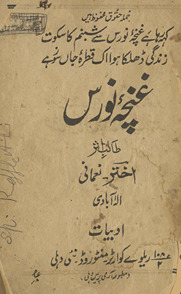 جملہ حقوق محفوظ ہیں
کہہ رہا ہے غنچۂ نورس سے شبنم کا سکوت
زندگی ڈھلکا ہوا اک قطرۂ جاں سوز ہے
غنچۂ نورس
اختر نعمانی
الہ آبادی
ادبیات
۱۰۸/۲ ریلوے کوارٹر منٹو روڈ نئی دہلی